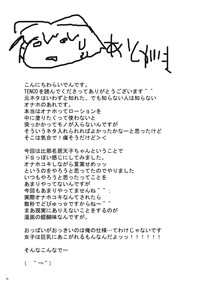 こんにちもわらいでんです。
TENCOを読んでくださってありがとうございます＾＾
元ネタはいわずと知れた、でも知らない人は知らない
オナホのあれです。
本当はオナホってローションを
中に塗りたくって使わないと
突っかかってモノが入らないんですが
そういうネタ入れられればよかったかなーと思ったけど
そこは気合で！痛そうだけど＾＾
今回は比那名居天子ちゃんということで
ドSっぽい感じにしてみました。
オナホコキしながら言葉攻めッッ
というのをやろうと思ってたのですが
いつもやろうと思ってたことを
あまりやってないんですが
今回もあまりやってませんね＾＾；
実際オナホコキなんてされたら
数秒でどぴゅっですな＾＾
まあ現実にありえないことをするのが
漫画の醍醐味なんです。
おっぱいがおっきいのは俺の仕様…ってわけじゃないです
女子は巨乳にあこがれるもんなんだよッッ！！！！！
そんなこんなでー